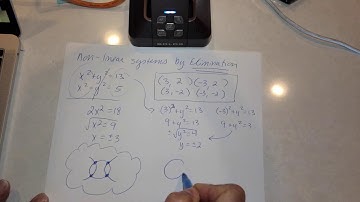 Non-linear Systems by Elimination
x² + y² = 13
x² - y² = 5
(3, 2) (-3, 2)
(3, -2) (-3, -2)
2x² = 18
√x² = 9
x = ±3
(3)² + y² = 13
9 + y² = 13
√y² = √4
y = ±2
(-3)² + y² = 13
9 + y² =